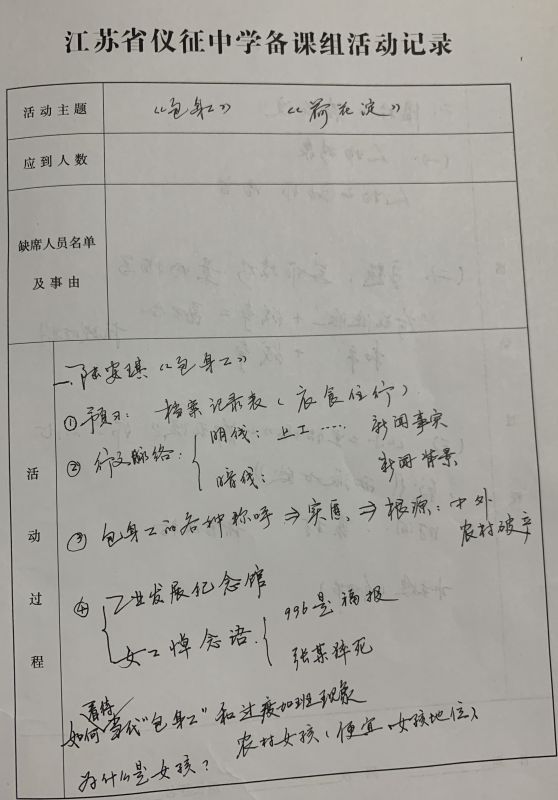 江苏省仪征中学备课组活动记录
活动主题 《包身工》 《荷花淀》
应到人数
缺席人员名单
及事由
活动过程
一、陆安琪《包身工》
①预习：档案记录表（衣食住行）
②行文脉络：明线：上工…… 新闻事实
暗线： 新闻背景
③包身工的各种称呼⇒实质⇒根源：中外
农村破产
④工业发展纪念馆
女工悼念语：996是福报
张某猝死
如何看待当代"包身工"和过度加班现象
为什么是女孩？ 农村女孩（便宜、女孩地位）